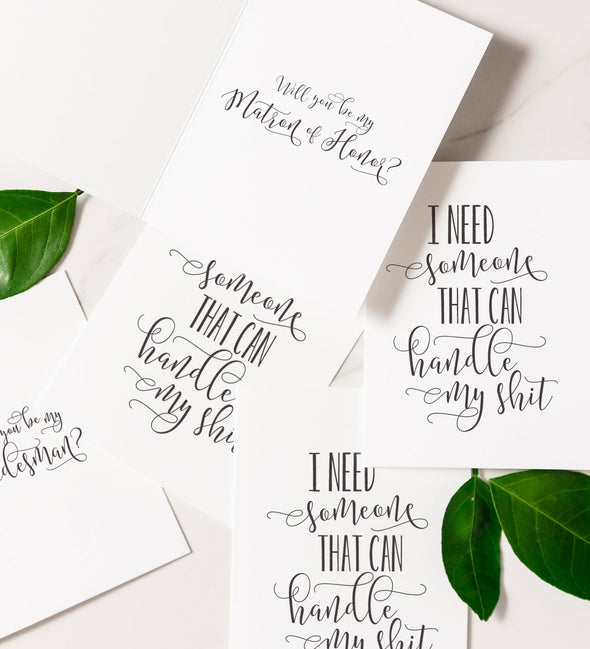 Will you be my
Matron of Honor?
I NEED
someone
THAT CAN
handle
my shit
someone
THAT CAN
handle
my shit
you be my
desman?
I NEED
someone
THAT CAN
handle
my shit